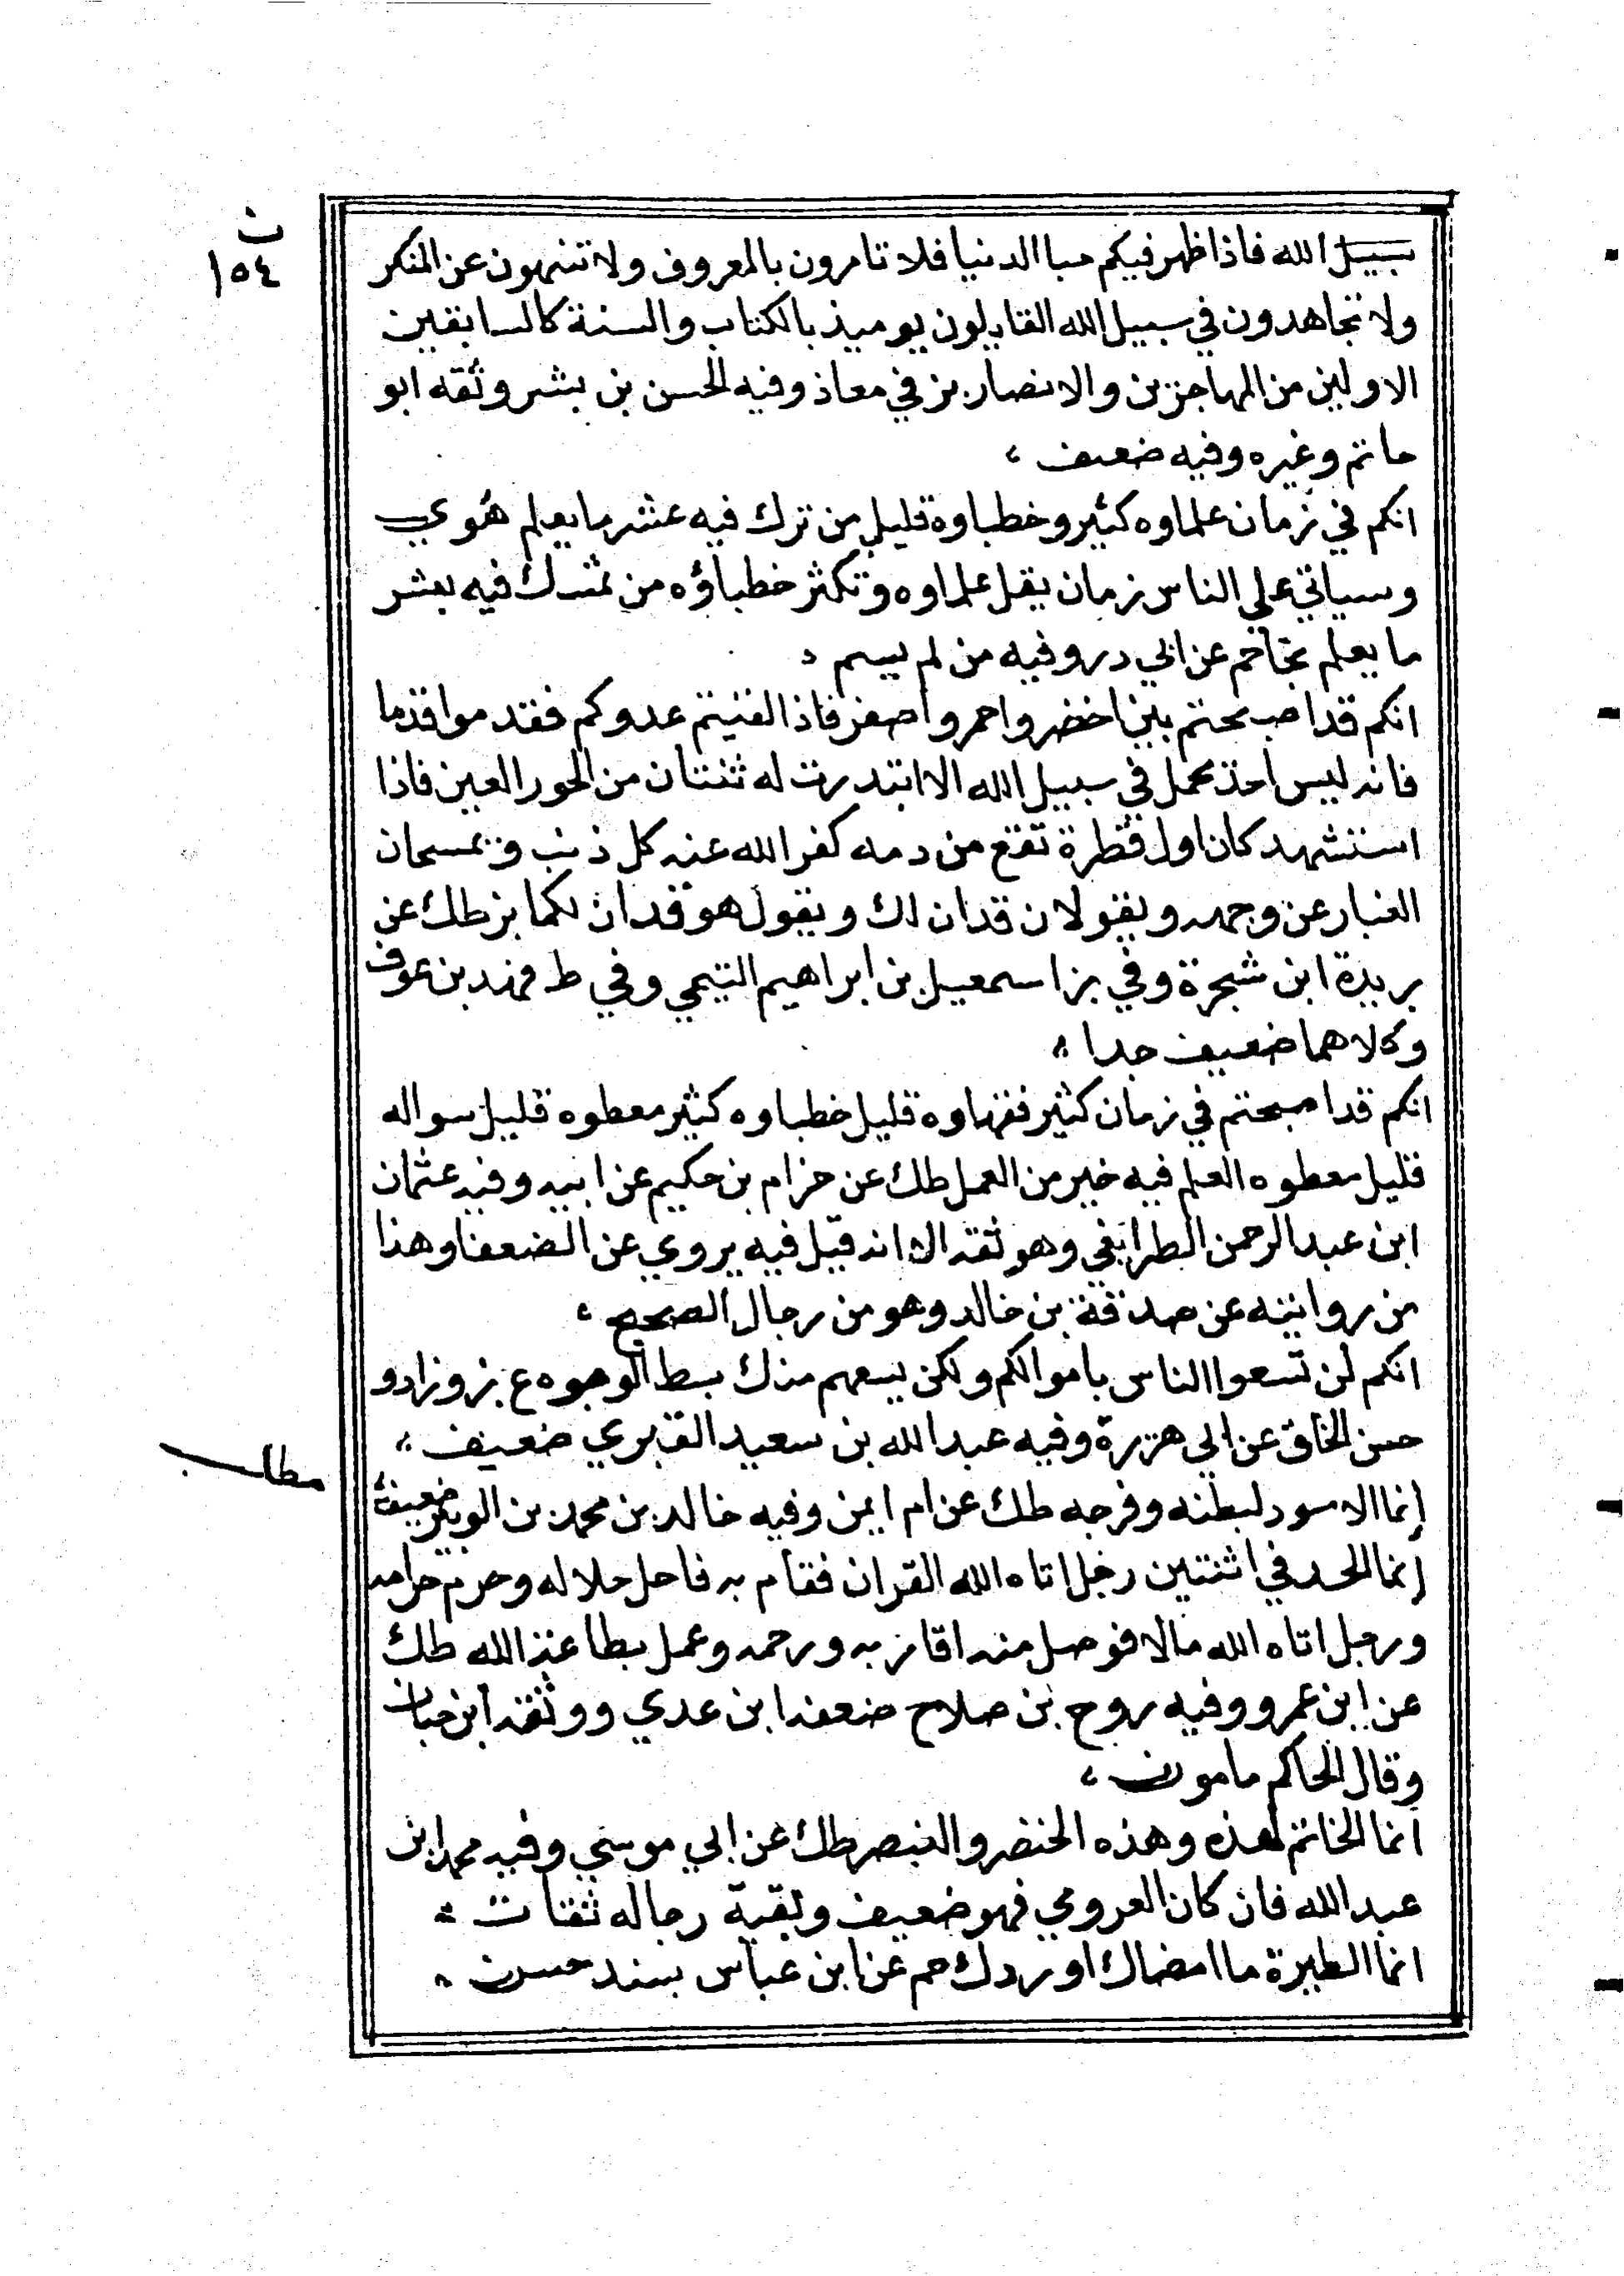 ث
١٥٤
سبيل الله فاذا ظهر فيكم حبا الدنيا فلا تامرون بالمعروف ولا تنهون عن المنكر
ولا تجاهدون في سبيل الله القايلون يوميذ بالكتاب والسنة كالسابقين
الاولين من المهاجرين والانصار بز في معاذ وفيه الحسن بن بشر وثقه ابو
حاتم وغيره وفيه ضعف ،
انكم في زمان علماوه كثير وخطباوه قليل من ترك فيه عشر ما يعلم هوي
وسياتي علي الناس زمان يقل علماوه وتكثر خطباؤه من تمسك فيه بعشر
ما يعلم نجا حم عن ابي در وفيه من لم يسم ،
انكم قد اصبحتم بين اخضر واحمر واصفر فاذا لقيتم عدوكم فقدموا قدما
فانه ليس احد يحمل في سبيل الله الا ابتدرت له ثنتان من الحور العين فاذا
استشهد كان اول قطرة تقع من دمه كفر الله عنه كل ذنب ويمسحان
الغبار عن وجهه ويقولان قد ان لك ويقول هو قد ان لكما بز طك عن
بريدة ابن شجرة وفي بز اسمعيل بن ابراهيم التيمي وفي ط فهد بن عوف
وكلاهما ضعيف جدا ،
انكم قد اصبحتم في زمان كثير فقهاوه قليل خطباوه كثير معطوه قليل سواله
قليل معطوه العلم فيه خير من العمل طك عن حزام بن حكيم عن ابيه وفيه عثمان
ابن عبد الرحمن الطرايفي وهو ثقه الا انه قيل فيه يروي عن الضعفا وهذا
من روايته عن صدقة بن خالد وهو من رجال الصحيح ،
انكم لن تسعوا الناس باموالكم ولكن يسعهم منك بسط الوجوه ع بز وزاد و
حسن الخلق عن ابي هريرة وفيه عبد الله بن سعيد المقبري ضعيف ،
مطلب
إنما الاسود لبطنه وفرجه طك عن ام ايمن وفيه خالد بن محمد بن الزبير ضعيف
إنما الحسد في اثنتين رجل اتاه الله القران فقام به فاحل حلاله وحرم حرامه
ورجل اتاه الله مالا فوصل منه اقاربه ورحمه وعمل بطاعة الله طك
عن ابن عمرو وفيه روح بن صلاح ضعفه ابن عدي ووثقه ابن حبان
وقال الحاكم مامون ،
انما الخاتم لهذه وهذه الخنصر والبنصر طك عن ابي موسي وفيه محمد ابن
عبد الله فان كان العرزمي فهو ضعيف وبقية رجاله ثقات ،
انما الطيرة ما امضاك او ردك حم عن ابن عباس بسند حسن ،